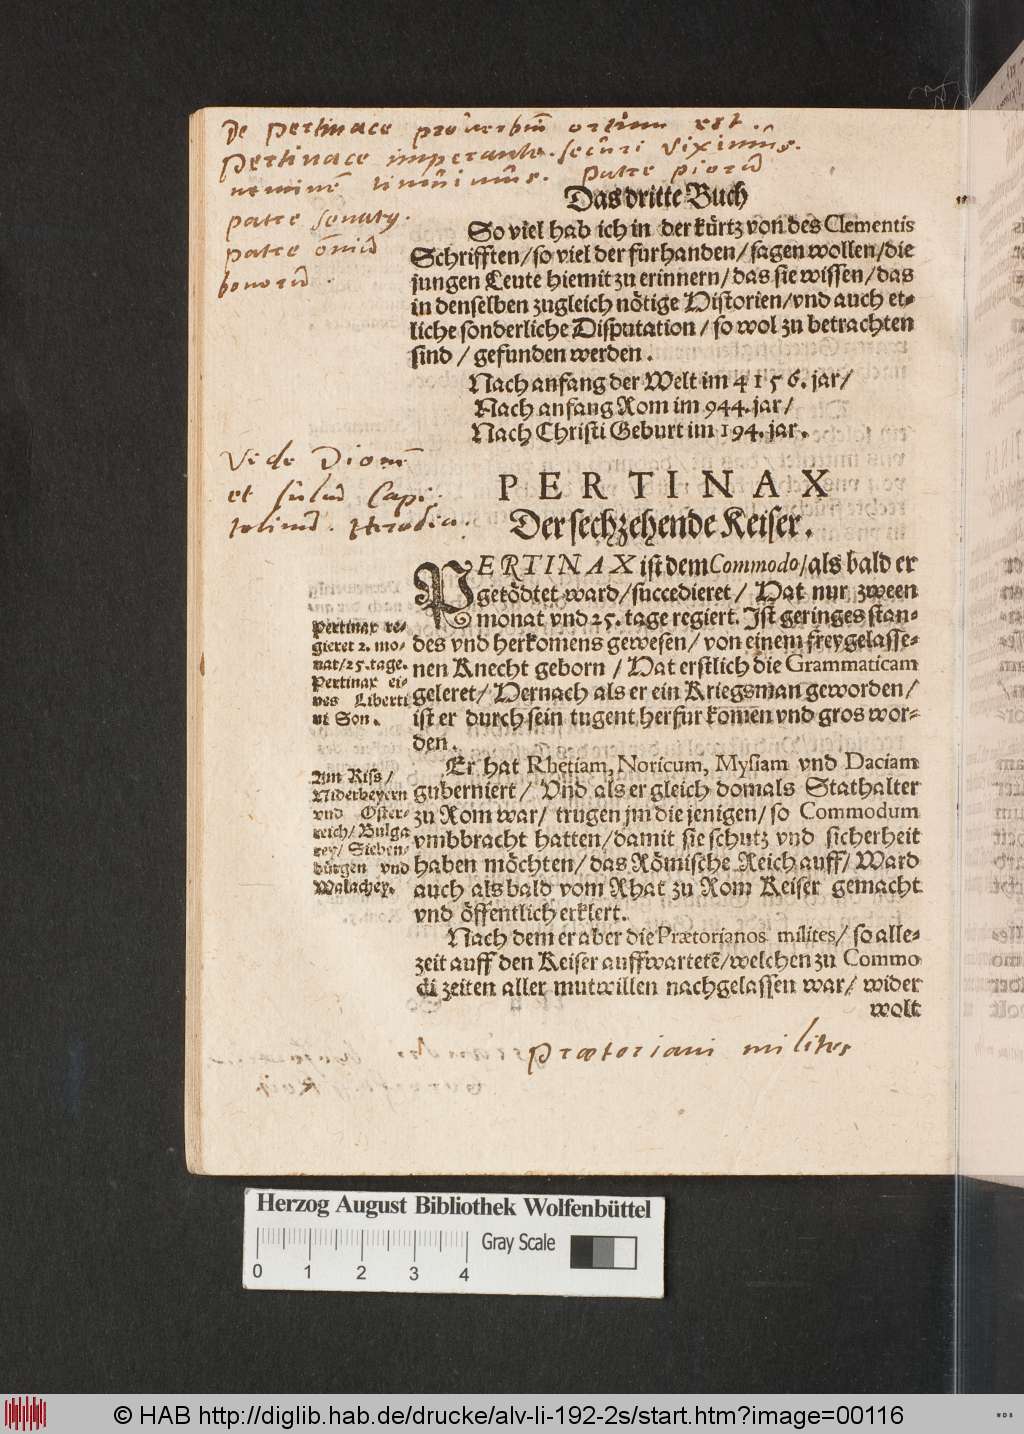 De Pertinace proverbiū ortum est.
Pertinace imperante securi viximus.
neminē timuimus. patre piorū
patre senatꝰ.
patre ōniū
bonorū.
Das dritte Buch
So viel hab ich in der kürtz von des Clementis
Schrifften/so viel der furhanden/sagen wollen/die
jungen Leute hiemit zu erinnern/das sie wissen/das
in denselben zugleich nötige Historien/vnd auch et-
liche sonderliche Disputation/so wol zu betrachten
sind/gefunden werden.
Nach anfang der Welt im 4156. jar/
Nach anfang Rom im 944. jar/
Nach Christi Geburt im 194. jar.
Vide Dionē
et Iuliū Capi
tolinū. Herodia.
PERTINAX
Der sechzehende Keiser.
PERTINAX ist dem Commodo/als bald er
getödtet ward/succedieret/Hat nur zween
monat vnd 25. tage regiert. Ist geringes stan-
des vnd herkomens gewesen/von einem freygelasse-
nen Knecht geborn/Hat erstlich die Grammaticam
geleret/Hernach als er ein Kriegsman geworden/
ist er durch sein tugent herfur komen vnd gros wor-
den.
Pertinax re-
gieret 2. mo-
nat/25. tage.
Pertinax ei-
nes Liberti
ni Son.
Er hat Rhetiam, Noricum, Mysiam vnd Daciam
guberniert/Vnd als er gleich domals Stathalter
zu Rom war/trugen jm die jenigen/so Commodum
vmbbracht hatten/damit sie schutz vnd sicherheit
haben möchten/das Römische Reich auff/Ward
auch als bald vom Rhat zu Rom Keiser gemacht
vnd öffentlich erklert.
Am Riss/
Niderbeyern
vnd Oster-
reich/Bulga
rey/Sieben/
bürgen vnd
Walachey.
Nach dem er aber die Prætorianos milites/so alle-
zeit auff den Keiser auffwartetē/welchen zu Commo
di zeiten aller mutwillen nachgelassen war/wider
wolt
Prætoriani milites
Herzog August Bibliothek Wolfenbüttel
Gray Scale
0 1 2 3 4
© HAB http://diglib.hab.de/drucke/alv-li-192-2s/start.htm?image=00116